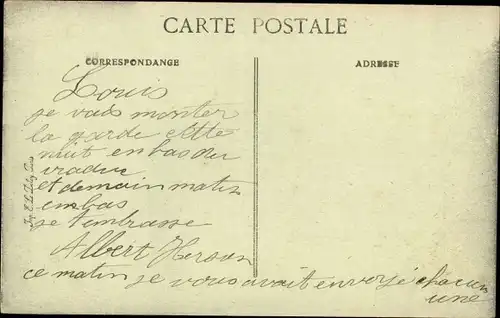 CARTE POSTALE
CORRESPONDANCE
ADRESSE
Louis
je vais monter
la garde cette
nuit en bas du
viaduc
et demain matin
en bas
je t'embrasse
Albert Herson
ce matin je vous avait envoyé chacun
une